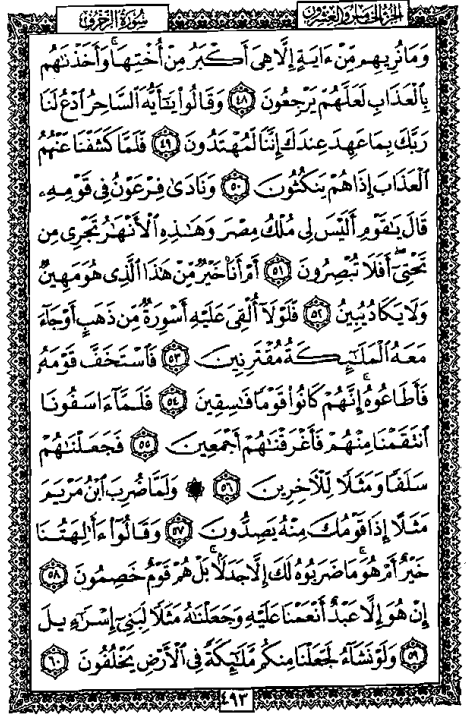 الجزء الخامس والعشرون
سورة الزخرف
وَمَا نُرِيهِم مِّنْ ءَايَةٍ إِلَّا هِىَ أَكْبَرُ مِنْ أُخْتِهَا ۖ وَأَخَذْنَٰهُم
بِٱلْعَذَابِ لَعَلَّهُمْ يَرْجِعُونَ ٤٨ وَقَالُوا۟ يَٰٓأَيُّهَ ٱلسَّاحِرُ ٱدْعُ لَنَا
رَبَّكَ بِمَا عَهِدَ عِندَكَ إِنَّنَا لَمُهْتَدُونَ ٤٩ فَلَمَّا كَشَفْنَا عَنْهُمُ
ٱلْعَذَابَ إِذَا هُمْ يَنكُثُونَ ٥٠ وَنَادَىٰ فِرْعَوْنُ فِى قَوْمِهِۦ
قَالَ يَٰقَوْمِ أَلَيْسَ لِى مُلْكُ مِصْرَ وَهَٰذِهِ ٱلْأَنْهَٰرُ تَجْرِى مِن
تَحْتِىٓ ۖ أَفَلَا تُبْصِرُونَ ٥١ أَمْ أَنَا۠ خَيْرٌ مِّنْ هَٰذَا ٱلَّذِى هُوَ مَهِينٌ
وَلَا يَكَادُ يُبِينُ ٥٢ فَلَوْلَآ أُلْقِىَ عَلَيْهِ أَسْوِرَةٌ مِّن ذَهَبٍ أَوْ جَآءَ
مَعَهُ ٱلْمَلَٰٓئِكَةُ مُقْتَرِنِينَ ٥٣ فَٱسْتَخَفَّ قَوْمَهُۥ
فَأَطَاعُوهُ ۚ إِنَّهُمْ كَانُوا۟ قَوْمًا فَٰسِقِينَ ٥٤ فَلَمَّآ ءَاسَفُونَا
ٱنتَقَمْنَا مِنْهُمْ فَأَغْرَقْنَٰهُمْ أَجْمَعِينَ ٥٥ فَجَعَلْنَٰهُمْ
سَلَفًا وَمَثَلًا لِّلْءَاخِرِينَ ٥٦ ۞ وَلَمَّا ضُرِبَ ٱبْنُ مَرْيَمَ
مَثَلًا إِذَا قَوْمُكَ مِنْهُ يَصِدُّونَ ٥٧ وَقَالُوٓا۟ ءَأَٰلِهَتُنَا
خَيْرٌ أَمْ هُوَ ۚ مَا ضَرَبُوهُ لَكَ إِلَّا جَدَلًۢا ۚ بَلْ هُمْ قَوْمٌ خَصِمُونَ ٥٨
إِنْ هُوَ إِلَّا عَبْدٌ أَنْعَمْنَا عَلَيْهِ وَجَعَلْنَٰهُ مَثَلًا لِّبَنِىٓ إِسْرَٰٓءِيلَ
٥٩ وَلَوْ نَشَآءُ لَجَعَلْنَا مِنكُم مَّلَٰٓئِكَةً فِى ٱلْأَرْضِ يَخْلُفُونَ ٦٠
٤٩٣